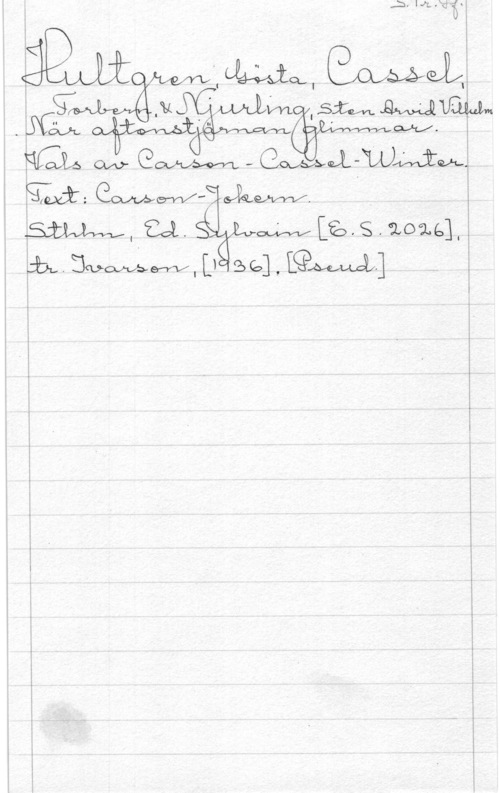 S. Tr. Sf.
Hultgren, Gösta, Cassel,
Torberg, & Njurling, Sten Arvid Vilhelm
När aftonstjärnan glimmar.
Vals av Carson-Cassel-Winter.
Text: Carson-Jokern.
Sthlm, Ed. Sylvain [E.S. 2026],
tr. Ivarson, [1936]. [Pseud.]